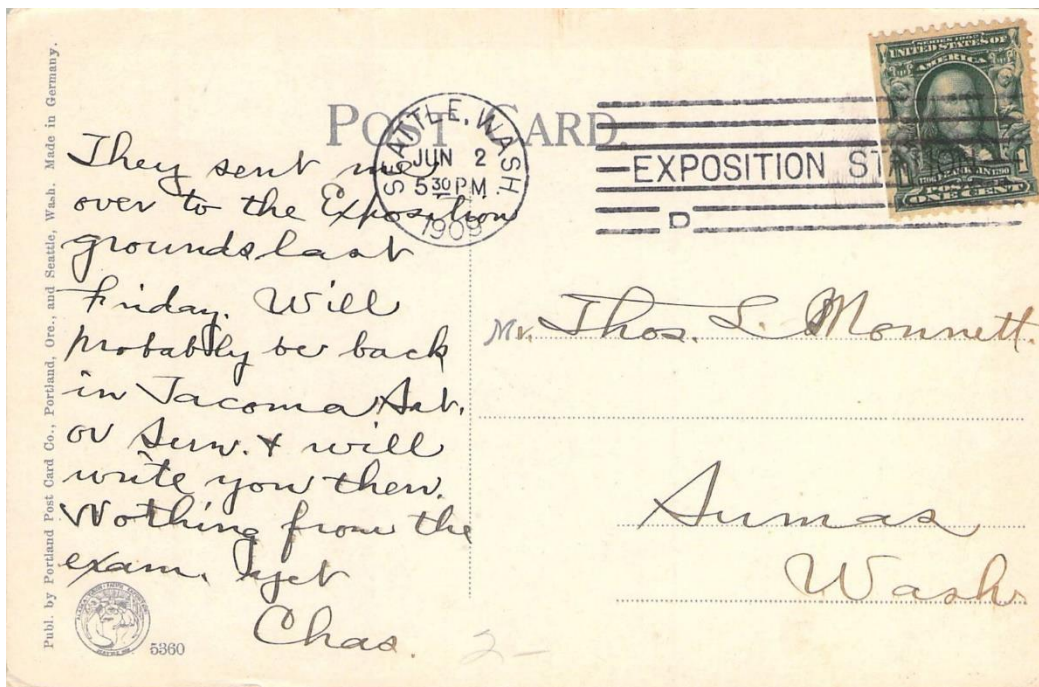 Publ. by Portland Post Card Co., Portland, Ore., and Seattle, Wash. Made in Germany.
POST CARD.
SEATTLE, WASH.
JUN 2
5 30 PM
1909
EXPOSITION STATION
D
SERIES 1902
UNITED STATES OF
AMERICA
1706 FRANKLIN 1790
POSTAGE
1 ONE CENT 1
They sent me
over to the Exposition
grounds last
Friday. Will
probably be back
in Tacoma Sat.
or Sun. & will
write you then.
Nothing from the
exam. yet
Chas.
Mr. Thos. L. Monnett.
Sumas
Wash.
5360
2-